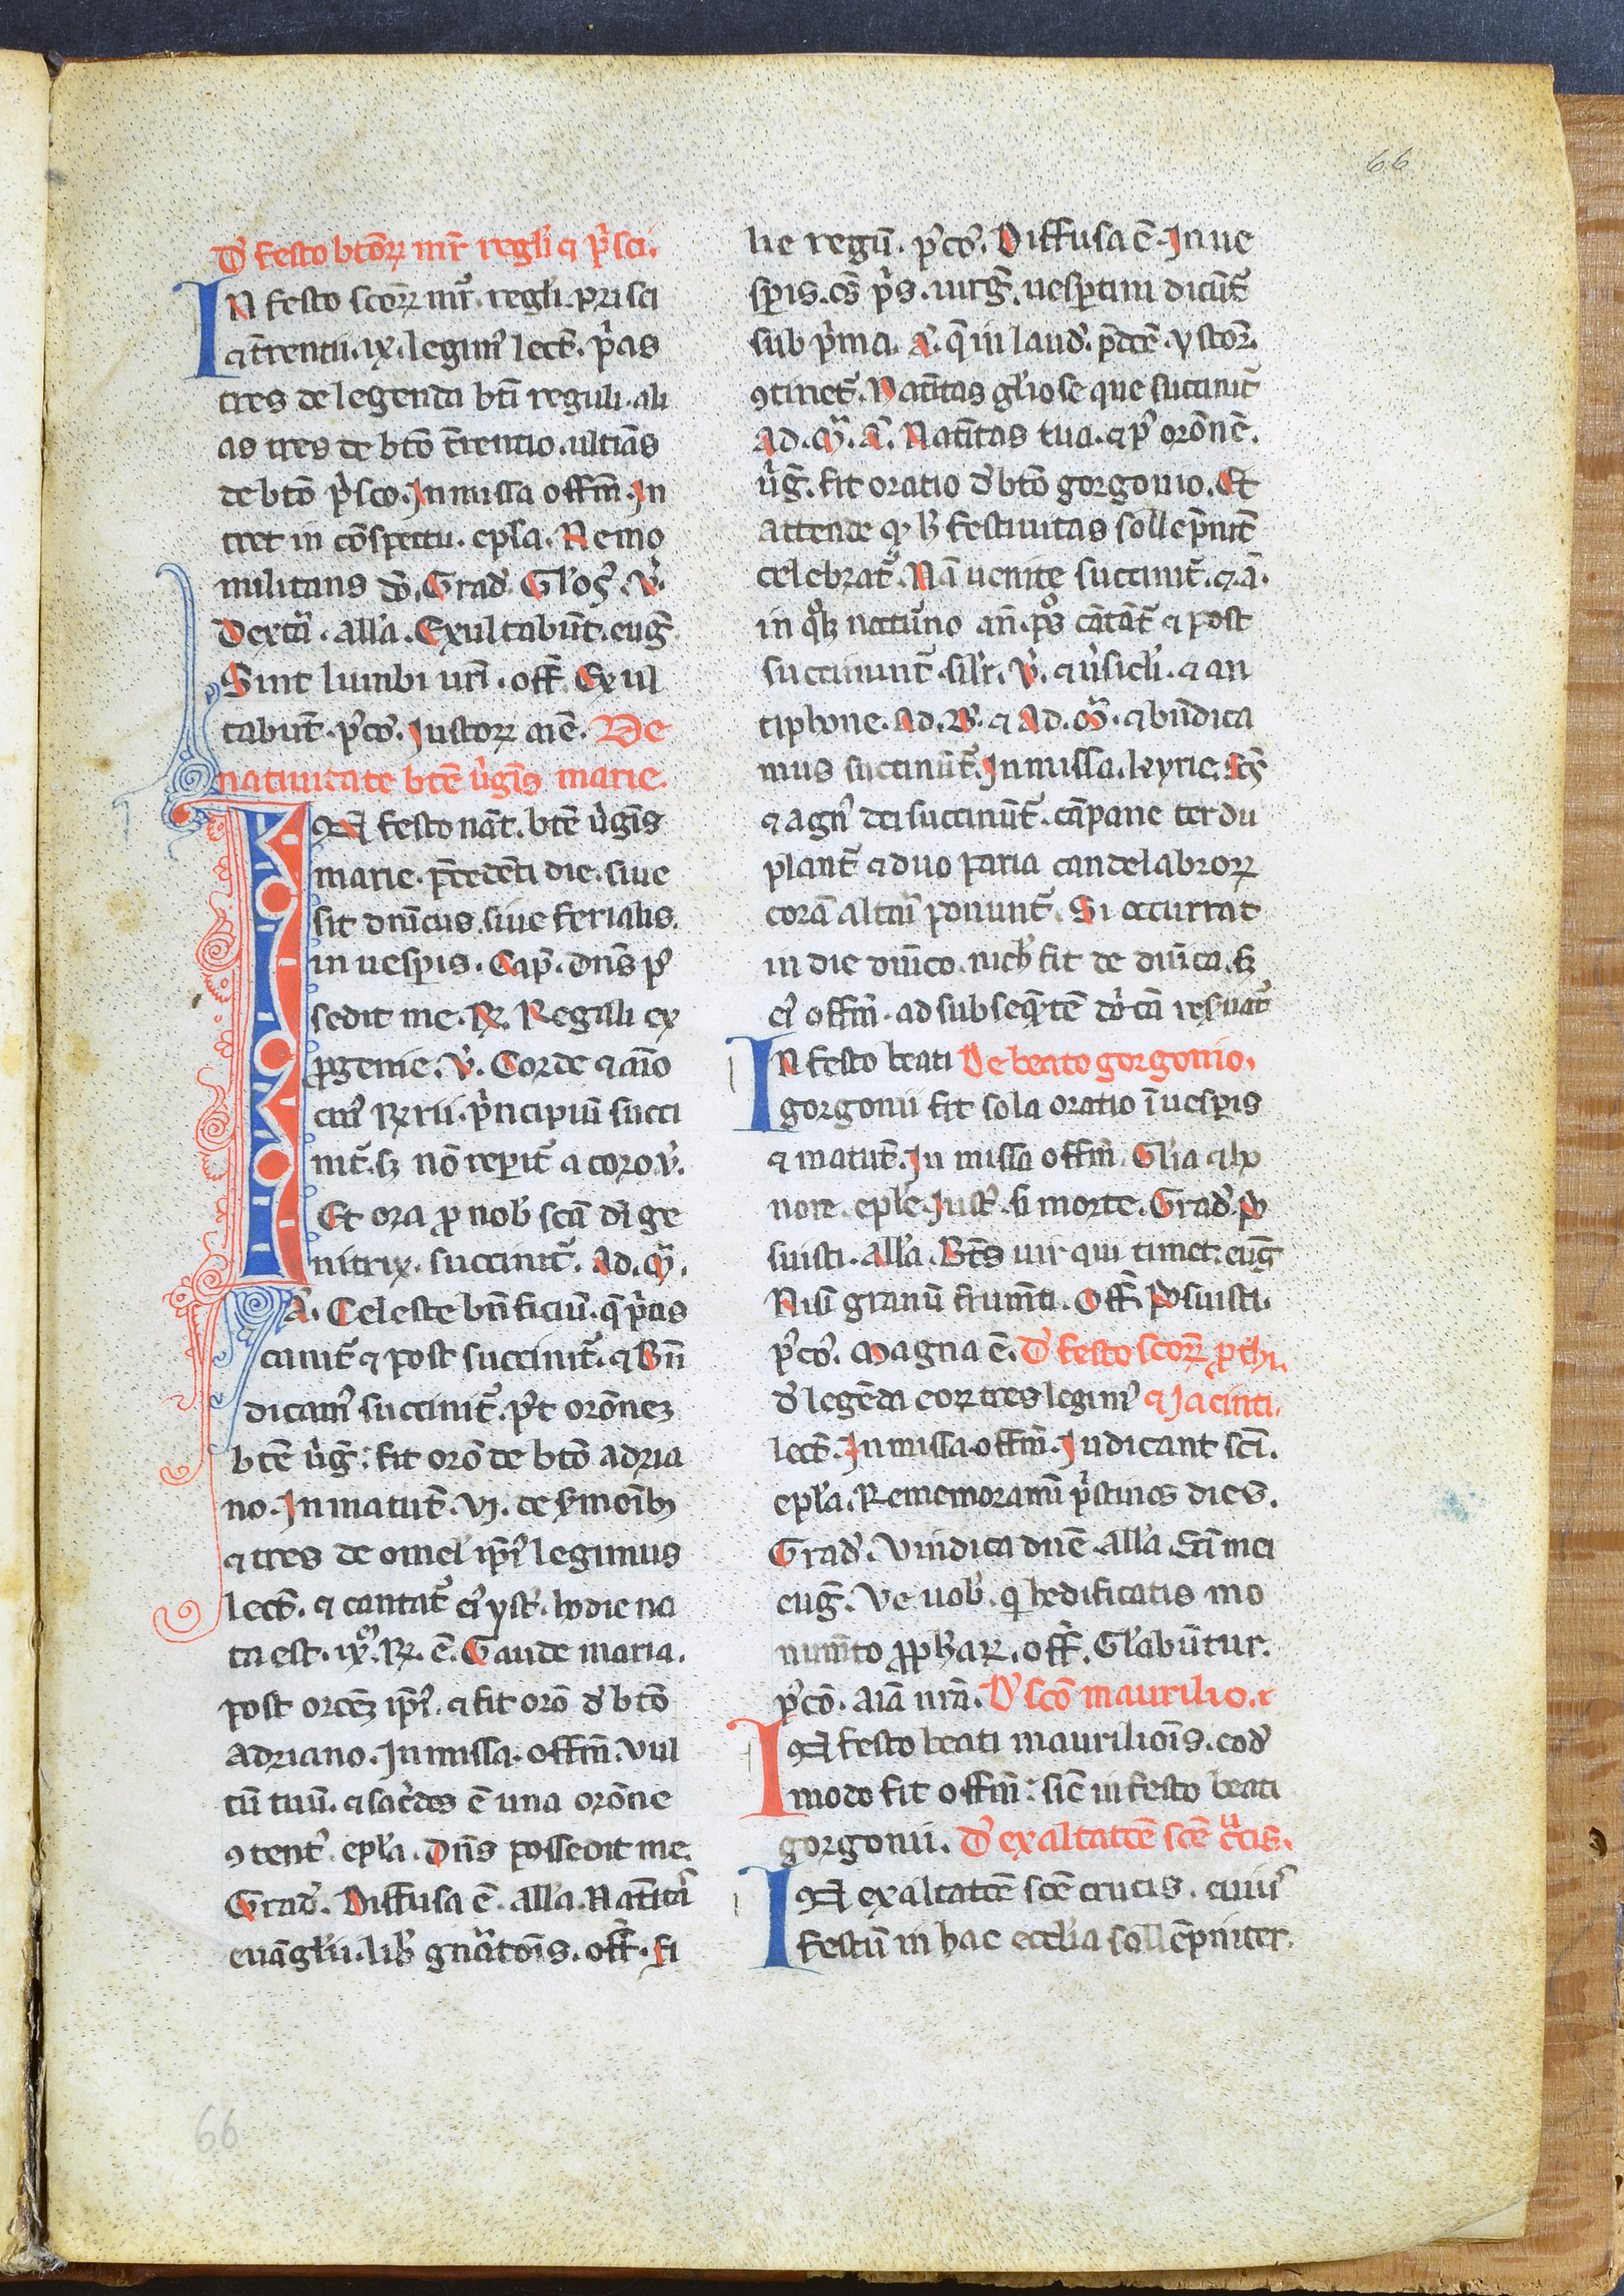 66
D' festo btōꝝ mr̄ regl'i ⁊ p'sci.
IN festo scōꝝ mr̄. regl'i. prisci
⁊ t'rentii. ix. legim' lect̄. p'as
tres de legenda bt̄i reguli. ali
as tres de btō t'rentio. ultiās
de btō p'sco. In missa offm̄. In
tret in cōspectu. epl'a. Nemo
militans dō. Grad'. Gl'os'. v'.
Dext'a. all'a. Exultabūt. euḡ.
Sint lumbi urī. off̄. Exul
tabūt. p'cō. Iustoꝝ aīe. De
natiuitate btē u'gīs marie.
IN festo nat̄. btē u'gīs
marie. p̄cedēti die. siue
sit dn̄icus. siue ferialis.
in uesp̄is. Cap̄. Dn̄s pos
sedit me. ℟. Regali ex
ꝓgenie. v'. Corde ⁊ aīo
cui' ℟rii. p'ncipiū succi
nit'. sꝫ nō rep̄it' a coro. v'.
Et ora ꝓ nob' scā dī ge
nitrix. succinit'. Ad. m̄.
A'. Celeste bn̄ficiū. q̄ p'us
canit' ⁊ post succinit'. ⁊ Bn̄
dicam' succinit'. p't orōneꝫ
btē u'ḡ. fit orō de btō adria
no. In matut̄. vj. de s'moībꝫ
⁊ tres de omel' ip̄i' legimus
lect̄. ⁊ cantat' ei' yst'. hodie na
ta est. ix'. ℟. ē. Gaude maria.
post orōeꝫ ip̄i'. ⁊ fit orō d' btō
adriano. In missa. offm̄. Vul
tū tuū. ⁊ sac'dos ē una orōne
ꝯtent'. epl'a. Dn̄s possedit me.
Grad'. Diffusa ē. all'a. Natiuit'
euāgl'ii. lib' gn̄atōis. off̄. fi
lie regū. p'cō. Diffusa ē. In ue
sp̄is. os̄ p's. uirḡ. uesp̄tini dicūt'
sub p'ma. a'. q̄ in laud'. p̄dcē. ystor̄.
ꝯtinet'. Natiuitas gl'iose que succinit'
Ad. m̄. a'. Natiuitas tua. ⁊ p' orōnē.
u'ḡ. fit oratio d' btō gorgonio. Et
attende qꝫ h' festiuitas sollēpnit̄
celebrat'. Nā uenite succinit'. ⁊ a'.
in qºlꝫ noct'no an̄. ps̄ cātāt' ⁊ post
succinunt'. sil'r. v'. ⁊ u'sicl'i. ⁊ an
tiphone. Ad. B. ⁊ Ad. m̄. ⁊ bn̄dica
mus succinūt'. In missa. kyrie. Scs̄
⁊ agn' dei succinūt'. cāpane ter du
plant'. ⁊ duo paria candelabroꝝ
corā altari ponunt'. Si occurrat
in die dn̄ico. nich' fit de dn̄ica. sꝫ
ei' offm̄. ad subseq̄tē dn̄icā res'uat'
IN festo beati De beato gorgonio.
gorgonii fit sola oratio ī uesp̄is
⁊ matut̄. In missa offm̄. Gl'ia ⁊ ho
nore. epl'e. Iust'. si morte. Grad'. Po
suisti. all'a. Bt̄s uir qui timet. euḡ.
Nisi granū frumēti. Off̄. Posuisti.
p'cō. Magna ē. D' festo scōꝝ p'thi.
d' legēda eoꝝ tres legim' ⁊ Jacinti.
lect̄. In missa. offm̄. Iudicant scī.
epl'a. Rememoramī p'stinos dies.
Grad'. Vindica dn̄e. all'a. Scī mei
euḡ. Ve uob'. q' hedificatis mo
numēto ꝓphaꝝ. off̄. Gl'abūtur.
p'cō. aīa nrā. D' scō maurilio. ⁊
IN festo beati maurilioīs. eod'
modo fit offm̄: sic in festo beati
gorgonii. D' exaltatōe scē c'cis.
IN exaltatōe scē crucis. cuius
festū in hac eccl'ia sollēpniter.
66